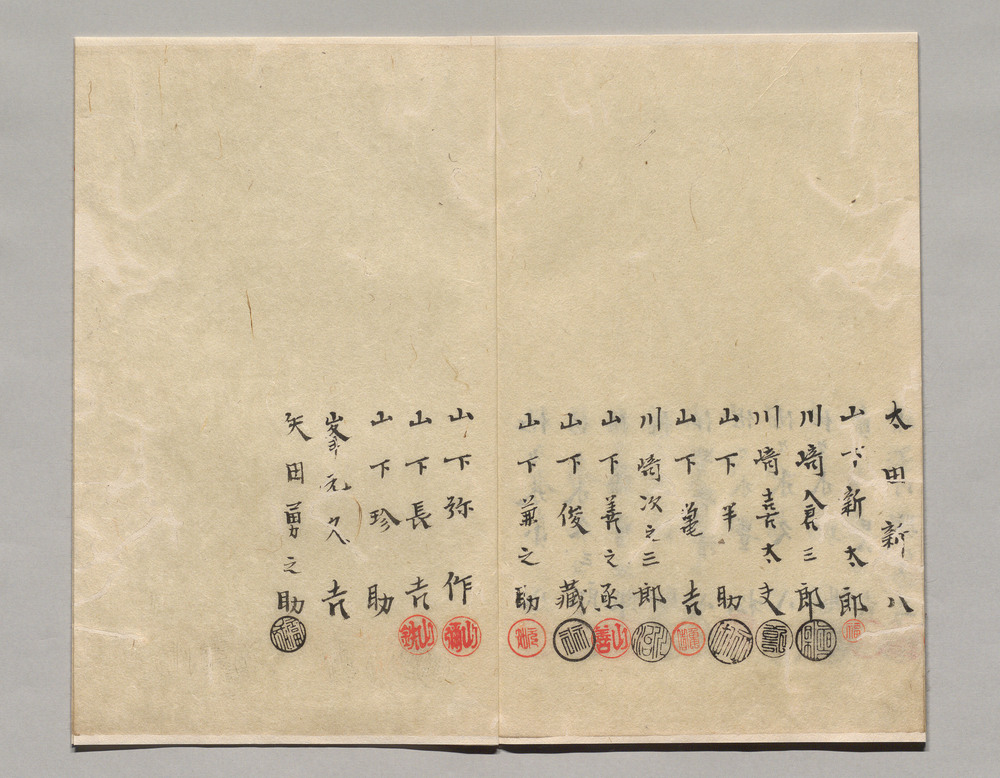 太田新八
山下新太郎
川崎倉三郎
川崎喜太夫
山下半助
山下亀吉
川崎次之三郎
山下善之丞
山下俊藏
山下兼之助
山下弥作
山下長吉
山下珍助
峯元久吉
矢田勇之助